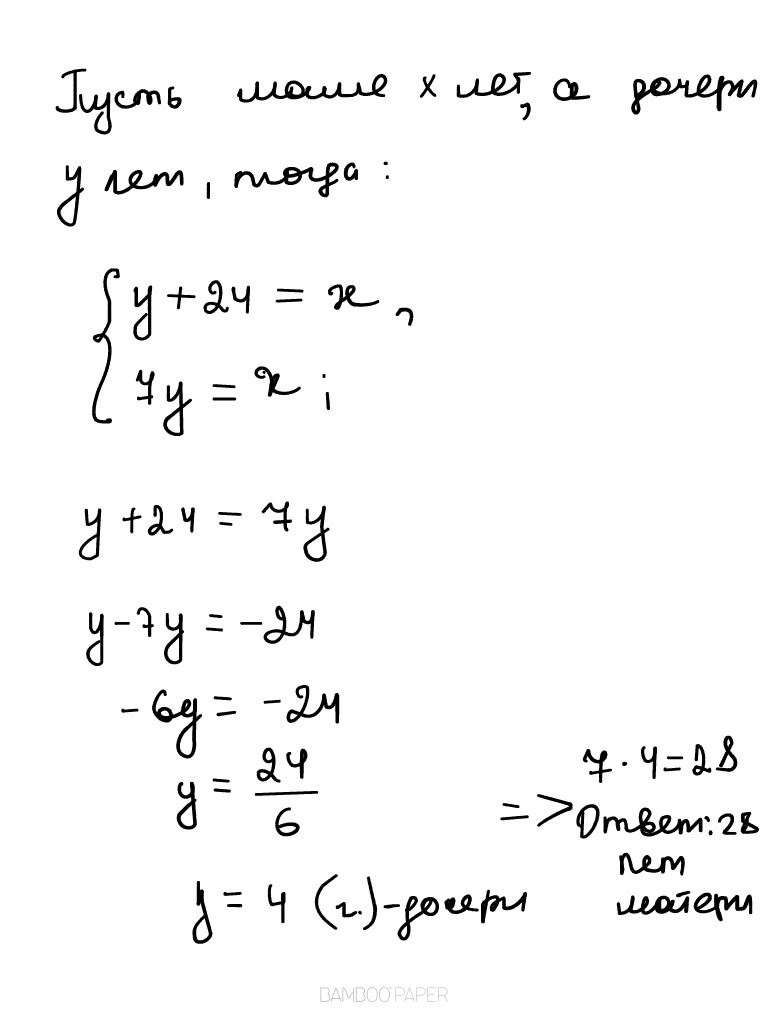 Пусть маме x лет, а дочери
y лет, тогда:
y + 24 = x,
7y = x;
y + 24 = 7y
y - 7y = -24
-6y = -24
y = 24/6
y = 4 (г.) - дочери
=> 7 · 4 = 28
Ответ: 28
лет
матери
BAMBOO PAPER